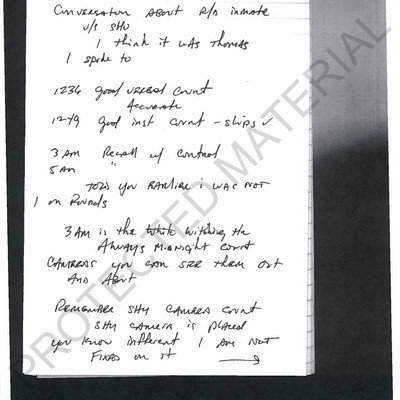 Conversation About R/n inmate
w/s SHU
I think it was Thomas
I spoke to
1236 Good verbal count
Accurate
1249 good inst count - slips ✓
3 AM Recall w/ Control
5 AM "
told you earlier i was not
1 on Rounds
3 AM is the witching the
Always midnight count
CAMERAS you can see them out
And About
Remember SHU camera count
SHU camera is placed
you know different I am not
Fixed on it
PROTECTED MATERIAL